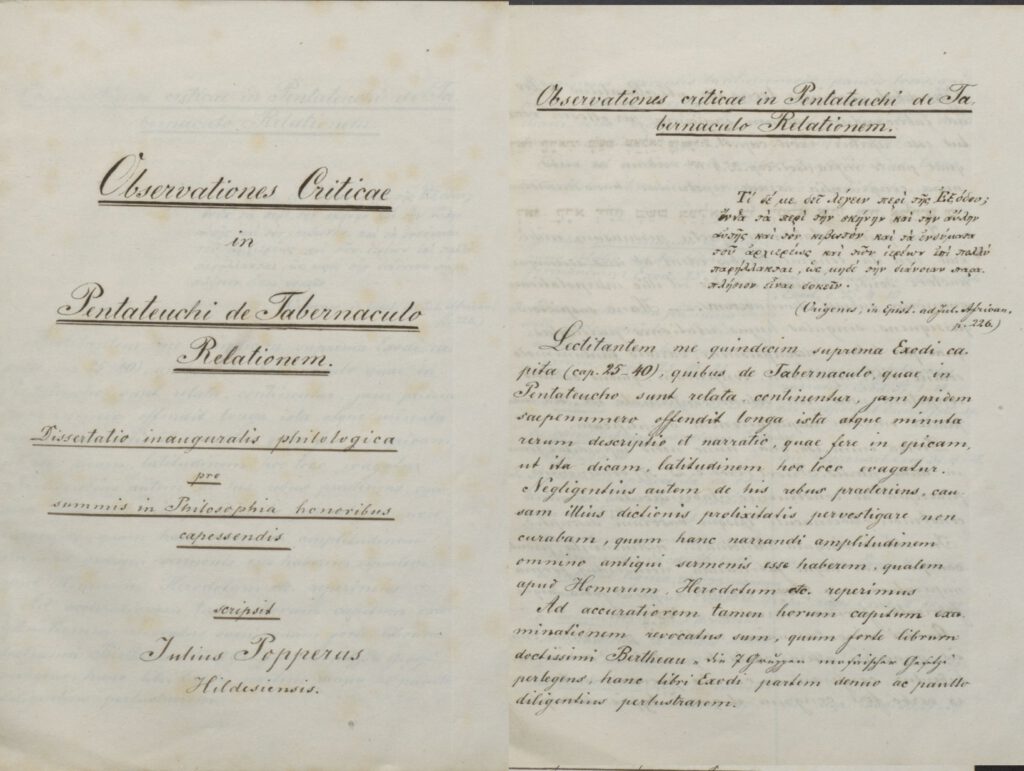 Observationes Criticae
in
Pentateuchi de Tabernaculo
Relationem.
Dissertatio inauguralis philologica
pro
summis in Philosophia honoribus
capessendis
scripsit
Julius Popperus
Hildesiensis.
Observationes criticae in Pentateuchi de Ta
bernaculo Relationem.
Τί δέ με δεῖ λέγειν περὶ τῆς Ἐξόδου;
ὅπου τὰ περὶ τὴν σκήνην καὶ τὴν αὐλὴν
αὐτῆς καὶ τὸν κιβωτὸν καὶ τὰ ἐνδύματα
τοῦ ἀρχιερέως καὶ τῶν ἱερέων ἐπὶ πολλὺ
παρήλλακται, ὡς μηδὲ τὴν διάνοιαν παρα
πλήσιον εἶναι δοκεῖν.
(Origenes, in Epist. ad Jul. African.
p. 226.)
Lectitantem me quindecim suprema Exodi ca
pita (cap. 25–40), quibus de Tabernaculo, quae in
Pentateucho sunt relata, continentur, jam pridem
saepenumero offendit longa ista atque minuta
rerum descriptio et narratio, quae fere in epicam,
ut ita dicam, latitudinem hoc loco evagatur.
Negligentius autem de his rebus praeteriens, cau
sam illius dictionis prolixitatis pervestigare non
curabam, quum hanc narrandi amplitudinem
omnino antiqui sermonis esse haberem, qualem
apud Homerum, Herodotum etc. reperimus
Ad accuratiorem tamen horum capitum exa
minationem revocatus sum, quum forte librum
doctissimi Bertheau „die 7 Gruppen mosaischer Gesetze
perlegens, hanc libri Exodi partem denuo ac paullo
diligentius perlustrarem.